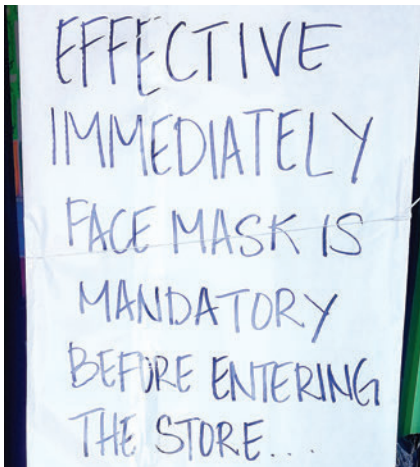 EFFECTIVE
IMMEDIATELY
FACE MASK IS
MANDATORY
BEFORE ENTERING
THE STORE...